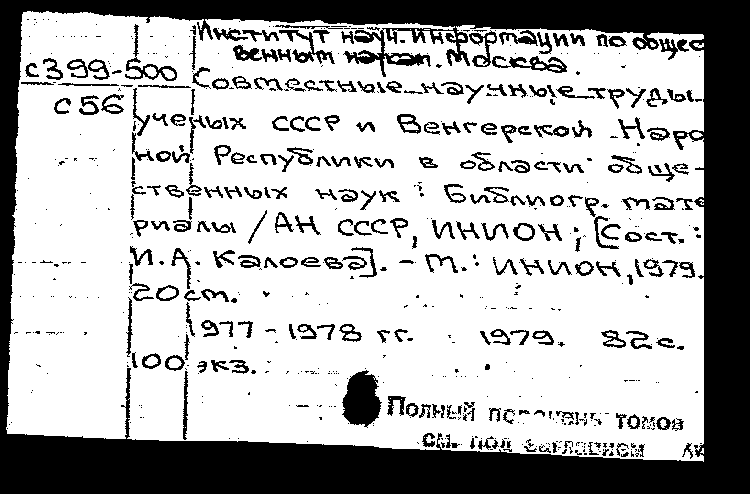 Институт науч. информации по общес
венным наукам. Москва.
с399-500 Совместные научные труды
с56
ученых СССР и Венгерской Наро
ной Республики в области обще-
ственных наук : Библиогр. мате
риалы / АН СССР, ИНИОН ; [Сост. :
И.А. Калоева]. - М. : ИНИОН, 1979.
20 см.
1977 - 1978 гг. 1979. 82 с.
100 экз.
Полный перечень томов
см. под заглавием